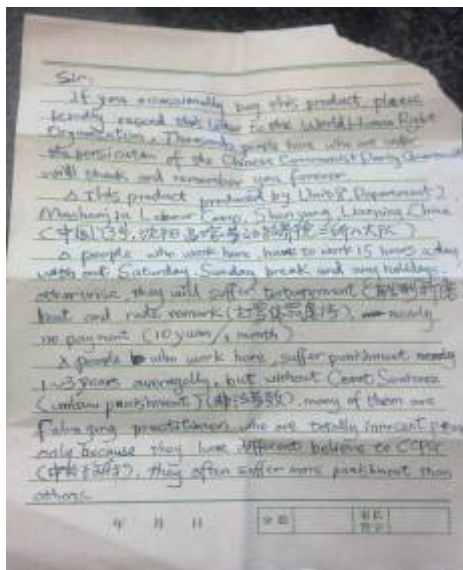 Sir,
If you occasionally buy this product, please
kindly resend this letter to the World Human Right
Organization. Thousands people here who are under
the persicution of the Chinese Communist Party Government
will thank and remember you forever.
△ This product produced by Unit 8, Department 2,
Labour Camp, Shenyang, Liaoning, China
(中国,辽宁,沈阳
△ people who work here, have to work 15 hours a day
with out Saturday, Sunday break and any holidays,
otherwise, they will suffer
beat and rude remark nearly
no payment (10 yuan/1 month)
△ people who work here, suffer punishment nearly
1~3 years averagely, but without Court Sentence
(unlaw punishment) many of them are
practitioner, who are totally innocent
only because they have different believe to CCPG
they often suffer more punishment than
others.
年 月 日